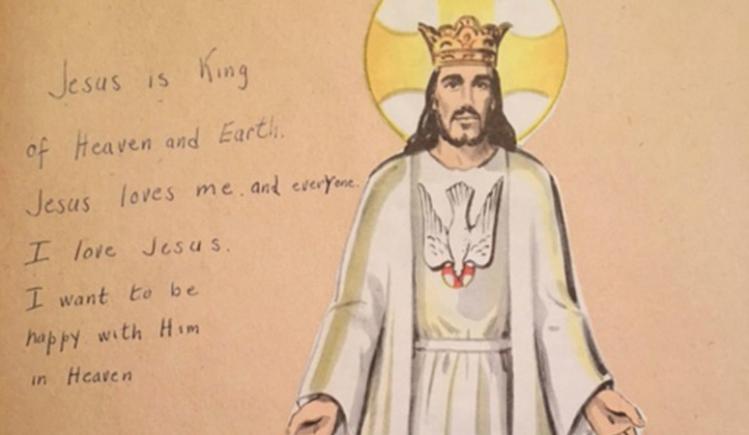 Jesus is King
of Heaven and Earth.
Jesus loves me. and everyone.
I love Jesus.
I want to be
happy with Him
in Heaven